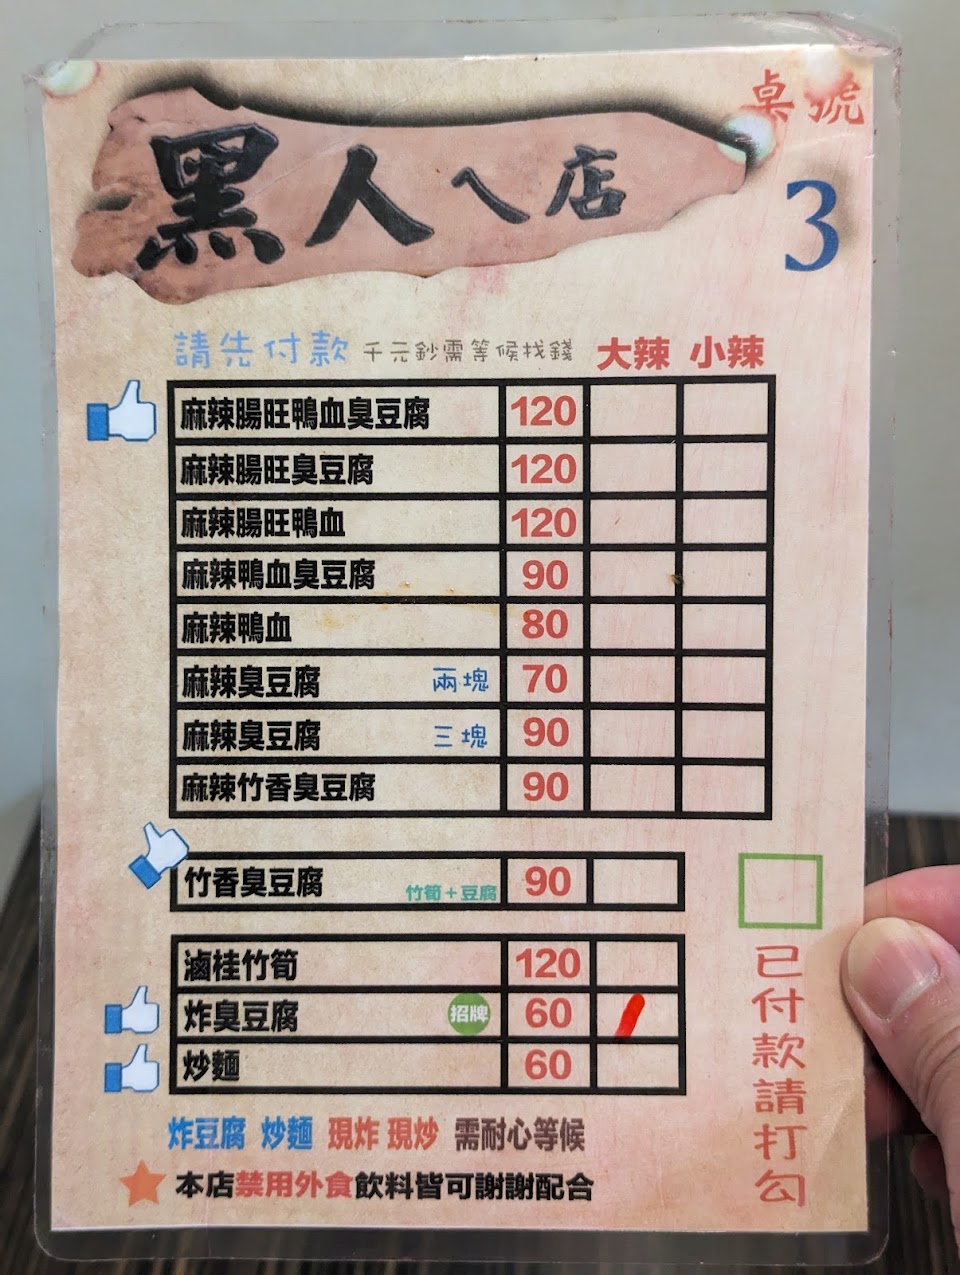 桌號
黑人ㄟ店
3
請先付款 千元鈔需等候找錢 大辣 小辣
麻辣腸旺鴨血臭豆腐 120
麻辣腸旺臭豆腐 120
麻辣腸旺鴨血 120
麻辣鴨血臭豆腐 90
麻辣鴨血 80
麻辣臭豆腐 兩塊 70
麻辣臭豆腐 三塊 90
麻辣竹香臭豆腐 90
竹香臭豆腐 竹筍+豆腐 90
滷桂竹筍 120
炸臭豆腐 招牌 60
炒麵 60
已付款請打勾
炸豆腐 炒麵 現炸 現炒 需耐心等候
本店禁用外食飲料皆可謝謝配合